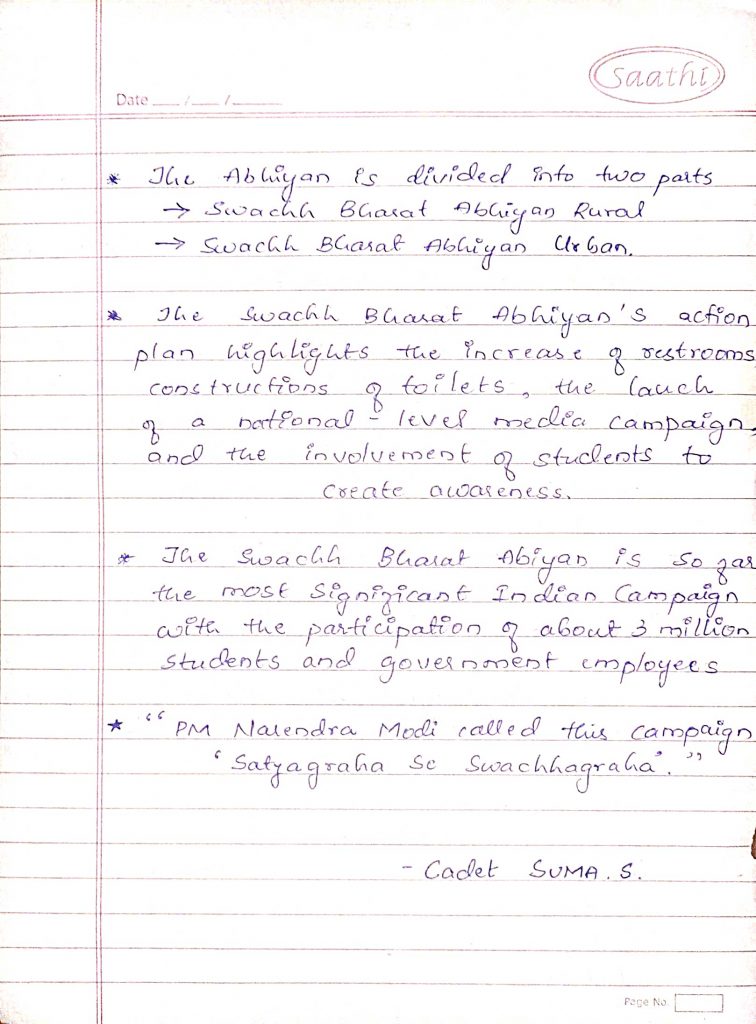 Saathi
Date ___/___/_____
* The Abhiyan is divided into two parts
→ Swachh Bharat Abhiyan Rural
→ Swachh Bharat Abhiyan Urban.
* The Swachh Bharat Abhiyan's action
plan highlights the increase of restrooms
constructions of toilets, the lauch
of a national-level media campaign,
and the involvement of students to
create awareness.
* The Swachh Bharat Abiyan is so far
the most significant Indian Campaign
with the participation of about 3 million
students and government employees
* "PM Narendra Modi called this campaign
'Satyagraha Se Swachhagraha'."
- Cadet SUMA. S.
Page No.